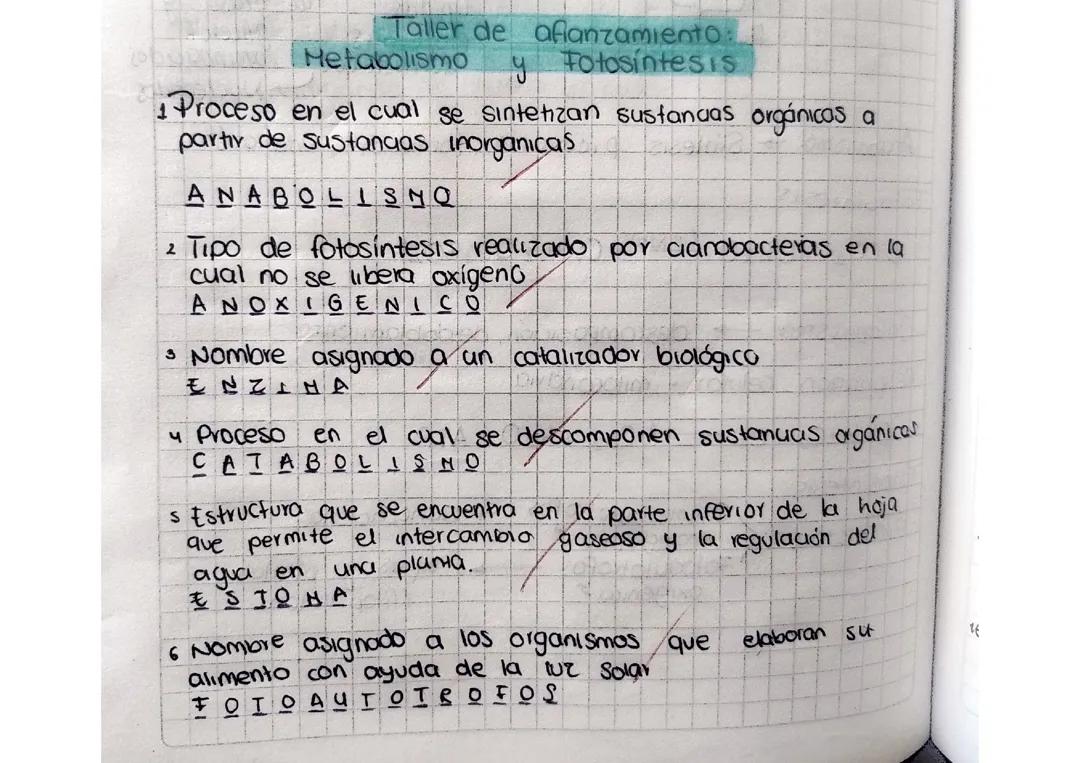 Taller de afianzamiento:
Metabolismo y Fotosíntesis
1 Proceso en el cual se sintetizan sustancias orgánicas a
partir de sustancias inorganicas
ANABOLISMO
2 Tipo de fotosíntesis realizado por cianobacterias en la
cual no se libera oxígeno
ANOXIGENICO
3 Nombre asignado a un catalizador biológico
ENZIMA
4 Proceso en el cual se descomponen sustancias orgánicas
CATABOLISMO
5 Estructura que se encuentra en la parte inferior de la hoja
que permite el intercambio gaseoso y la regulación del
agua en una planta.
ESTOMA
6 Nombre asignado a los organismos que elaboran su
alimento con ayuda de la luz solar
FOTOAUTOTROFOS